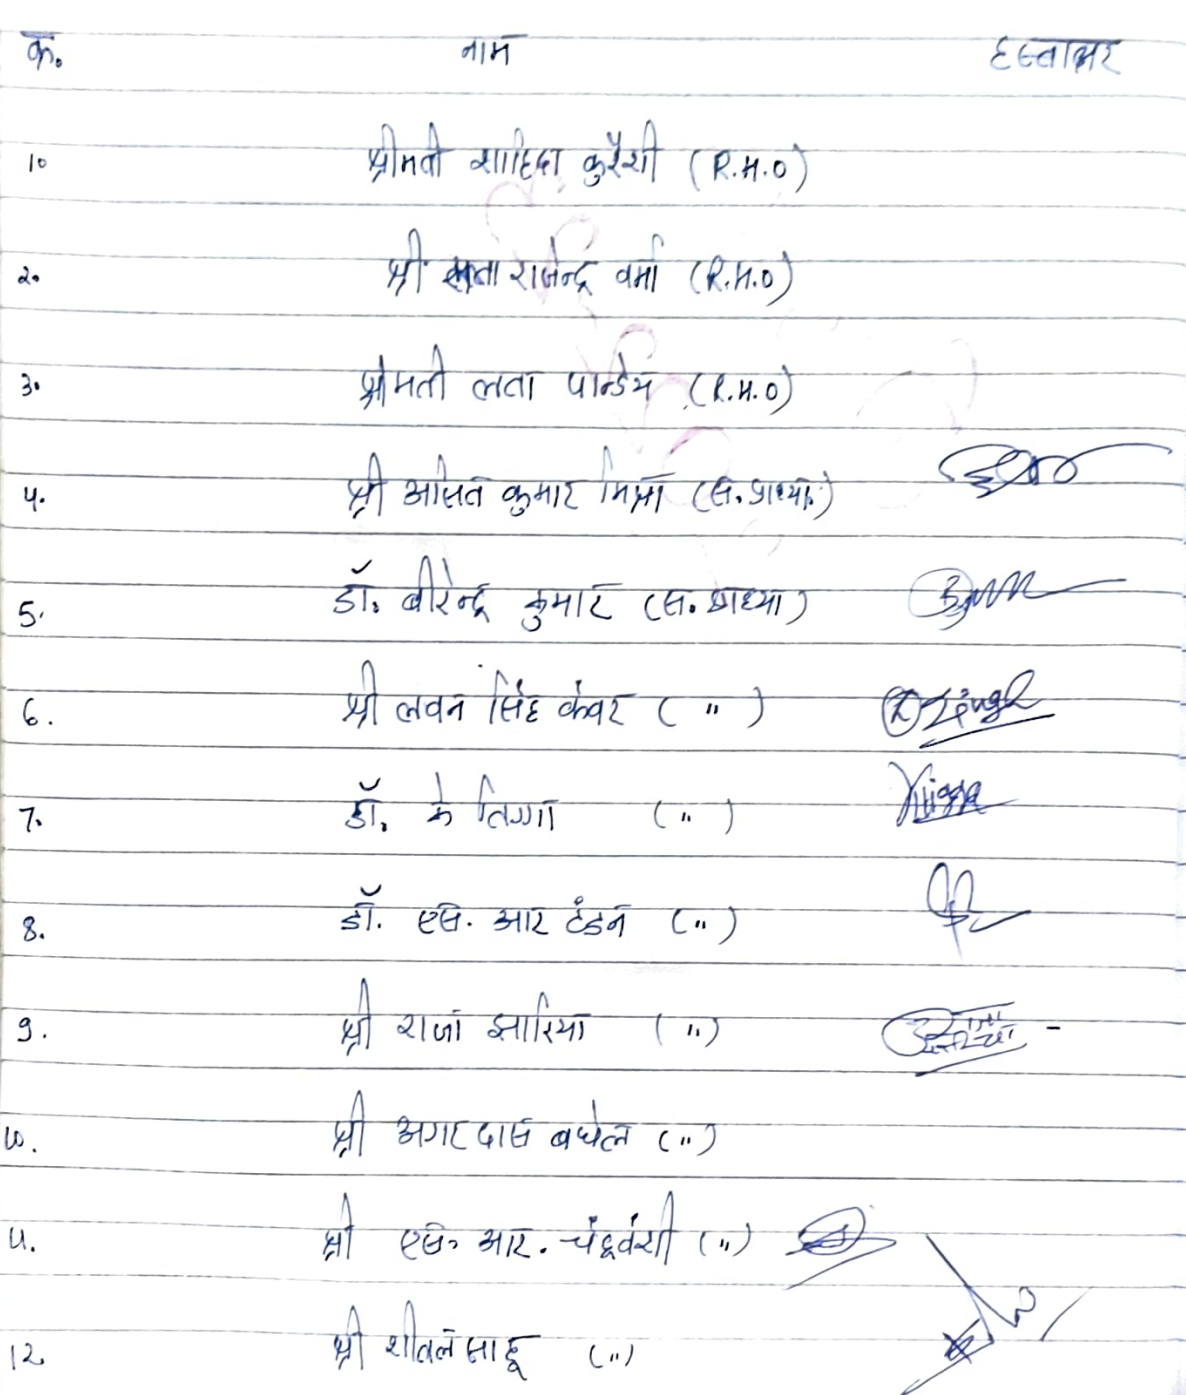 क्र. नाम हस्ताक्षर
1. श्रीमती शाहिदा कुरैशी (R.H.O)
2. श्री राजेन्द्र वर्मा (R.H.O)
3. श्रीमती लता पान्डेय (R.H.O)
4. श्री अजित कुमार मिश्रा (स. प्राध्या.)
5. डॉ. बीरेन्द्र कुमार (स. प्राध्या)
6. श्री लवन सिंह कंवर ( " ) Singh
7. डॉ. के तिग्गा ( " )
8. डॉ. एस. आर टंडन ( " )
9. श्री राजा झारिया ( " )
10. श्री अगरदास बघेल ( " )
11. श्री एस. आर. चंद्रवंशी ( " )
12. श्री शीतल साहू ( " )